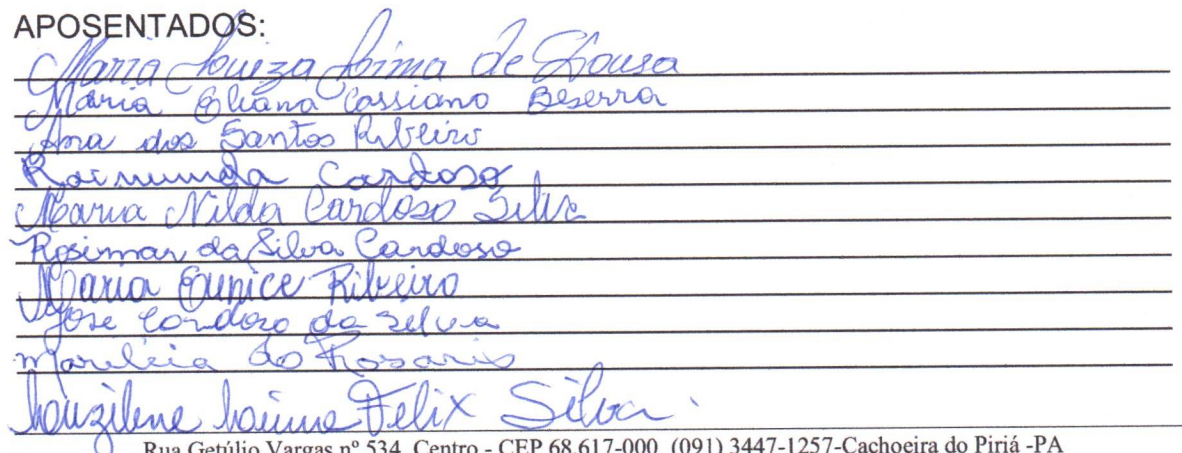 APOSENTADOS:
Maria Louiza Lima de Sousa
Maria Eliana Cassiano Beserra
Ana dos Santos Ribeiro
Raimunda Cardoso
Maria Nilda Cardoso Silva
Rosimar da Silva Cardoso
Maria Eunice Ribeiro
Jose Cardozo da Selva
Marileia do Rosario
Louzilene Felix Silva.
Rua Getúlio Vargas nº 534 Centro - CEP 68.617-000 (091) 3447-1257-Cachoeira do Piriá -PA